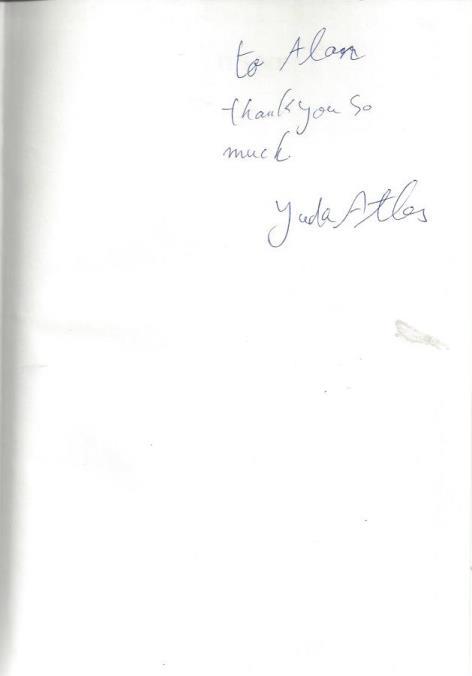 to Alan
thank you so
much
Yuda Atlas